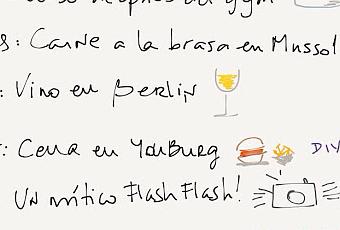 s: Carne a la brasa en Mussol
: Vino en Berlin
: Cena en YouBurg DIV
Un mítico FlashFlash!